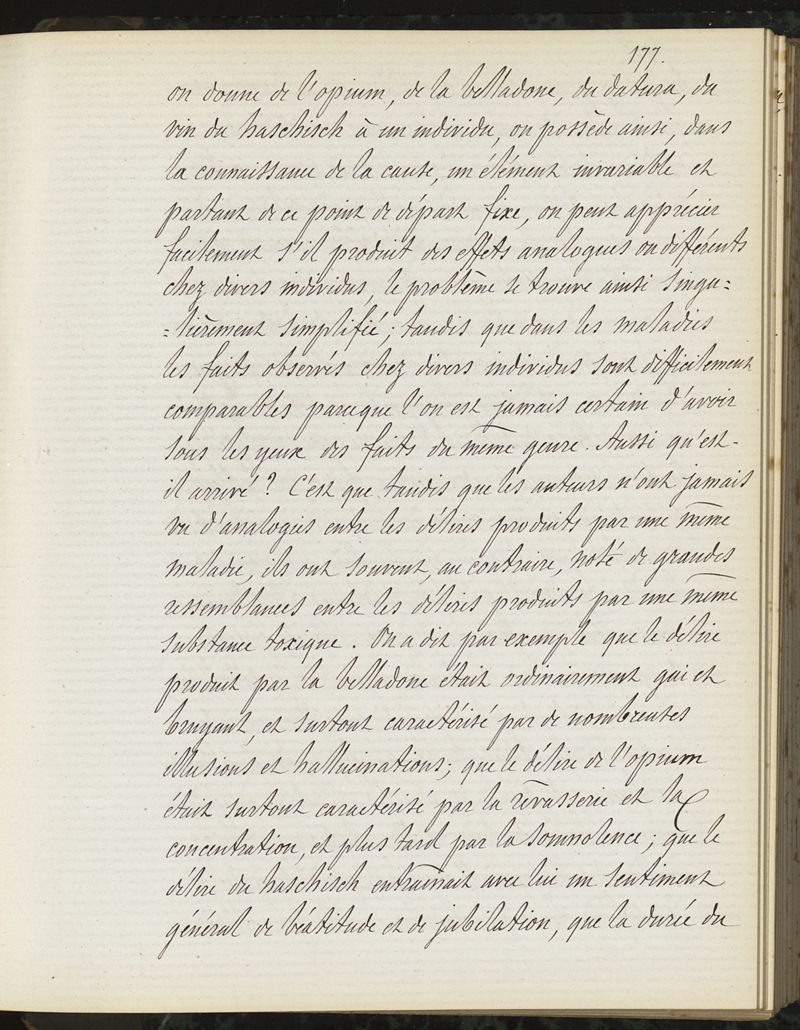 177.
on donne de l'opium, de la belladone, du datura, du
vin du haschisch à un individu, on possède ainsi, dans
la connaissance de la cause, un élément invariable et
partant de ce point de départ fixe, on peut apprécier
facilement s'il produit des effets analogues ou différents
chez divers individus, le problème se trouve ainsi singu=
=lièrement simplifié; tandis que dans les maladies
les faits observés chez divers individus sont difficilement
comparables parceque l'on est jamais certain d'avoir
sous les yeux des faits du même genre. Aussi qu'est-
il arrivé? C'est que tandis que les auteurs n'ont jamais
vu d'analogies entre les délires produits par une même
maladie, ils ont souvent, au contraire, noté de grandes
ressemblances entre les délires produits par une même
substance toxique. On a dit par exemple que le délire
produit par la belladone était ordinairement gai et
bruyant, et surtout caractérisé par de nombreuses
illusions et hallucinations; que le délire de l'opium
était surtout caractérisé par la rêvasserie et la
concentration, et plus tard par la somnolence; que le
délire du haschisch entraînait avec lui un sentiment
général de béatitude et de jubilation, que la durée du